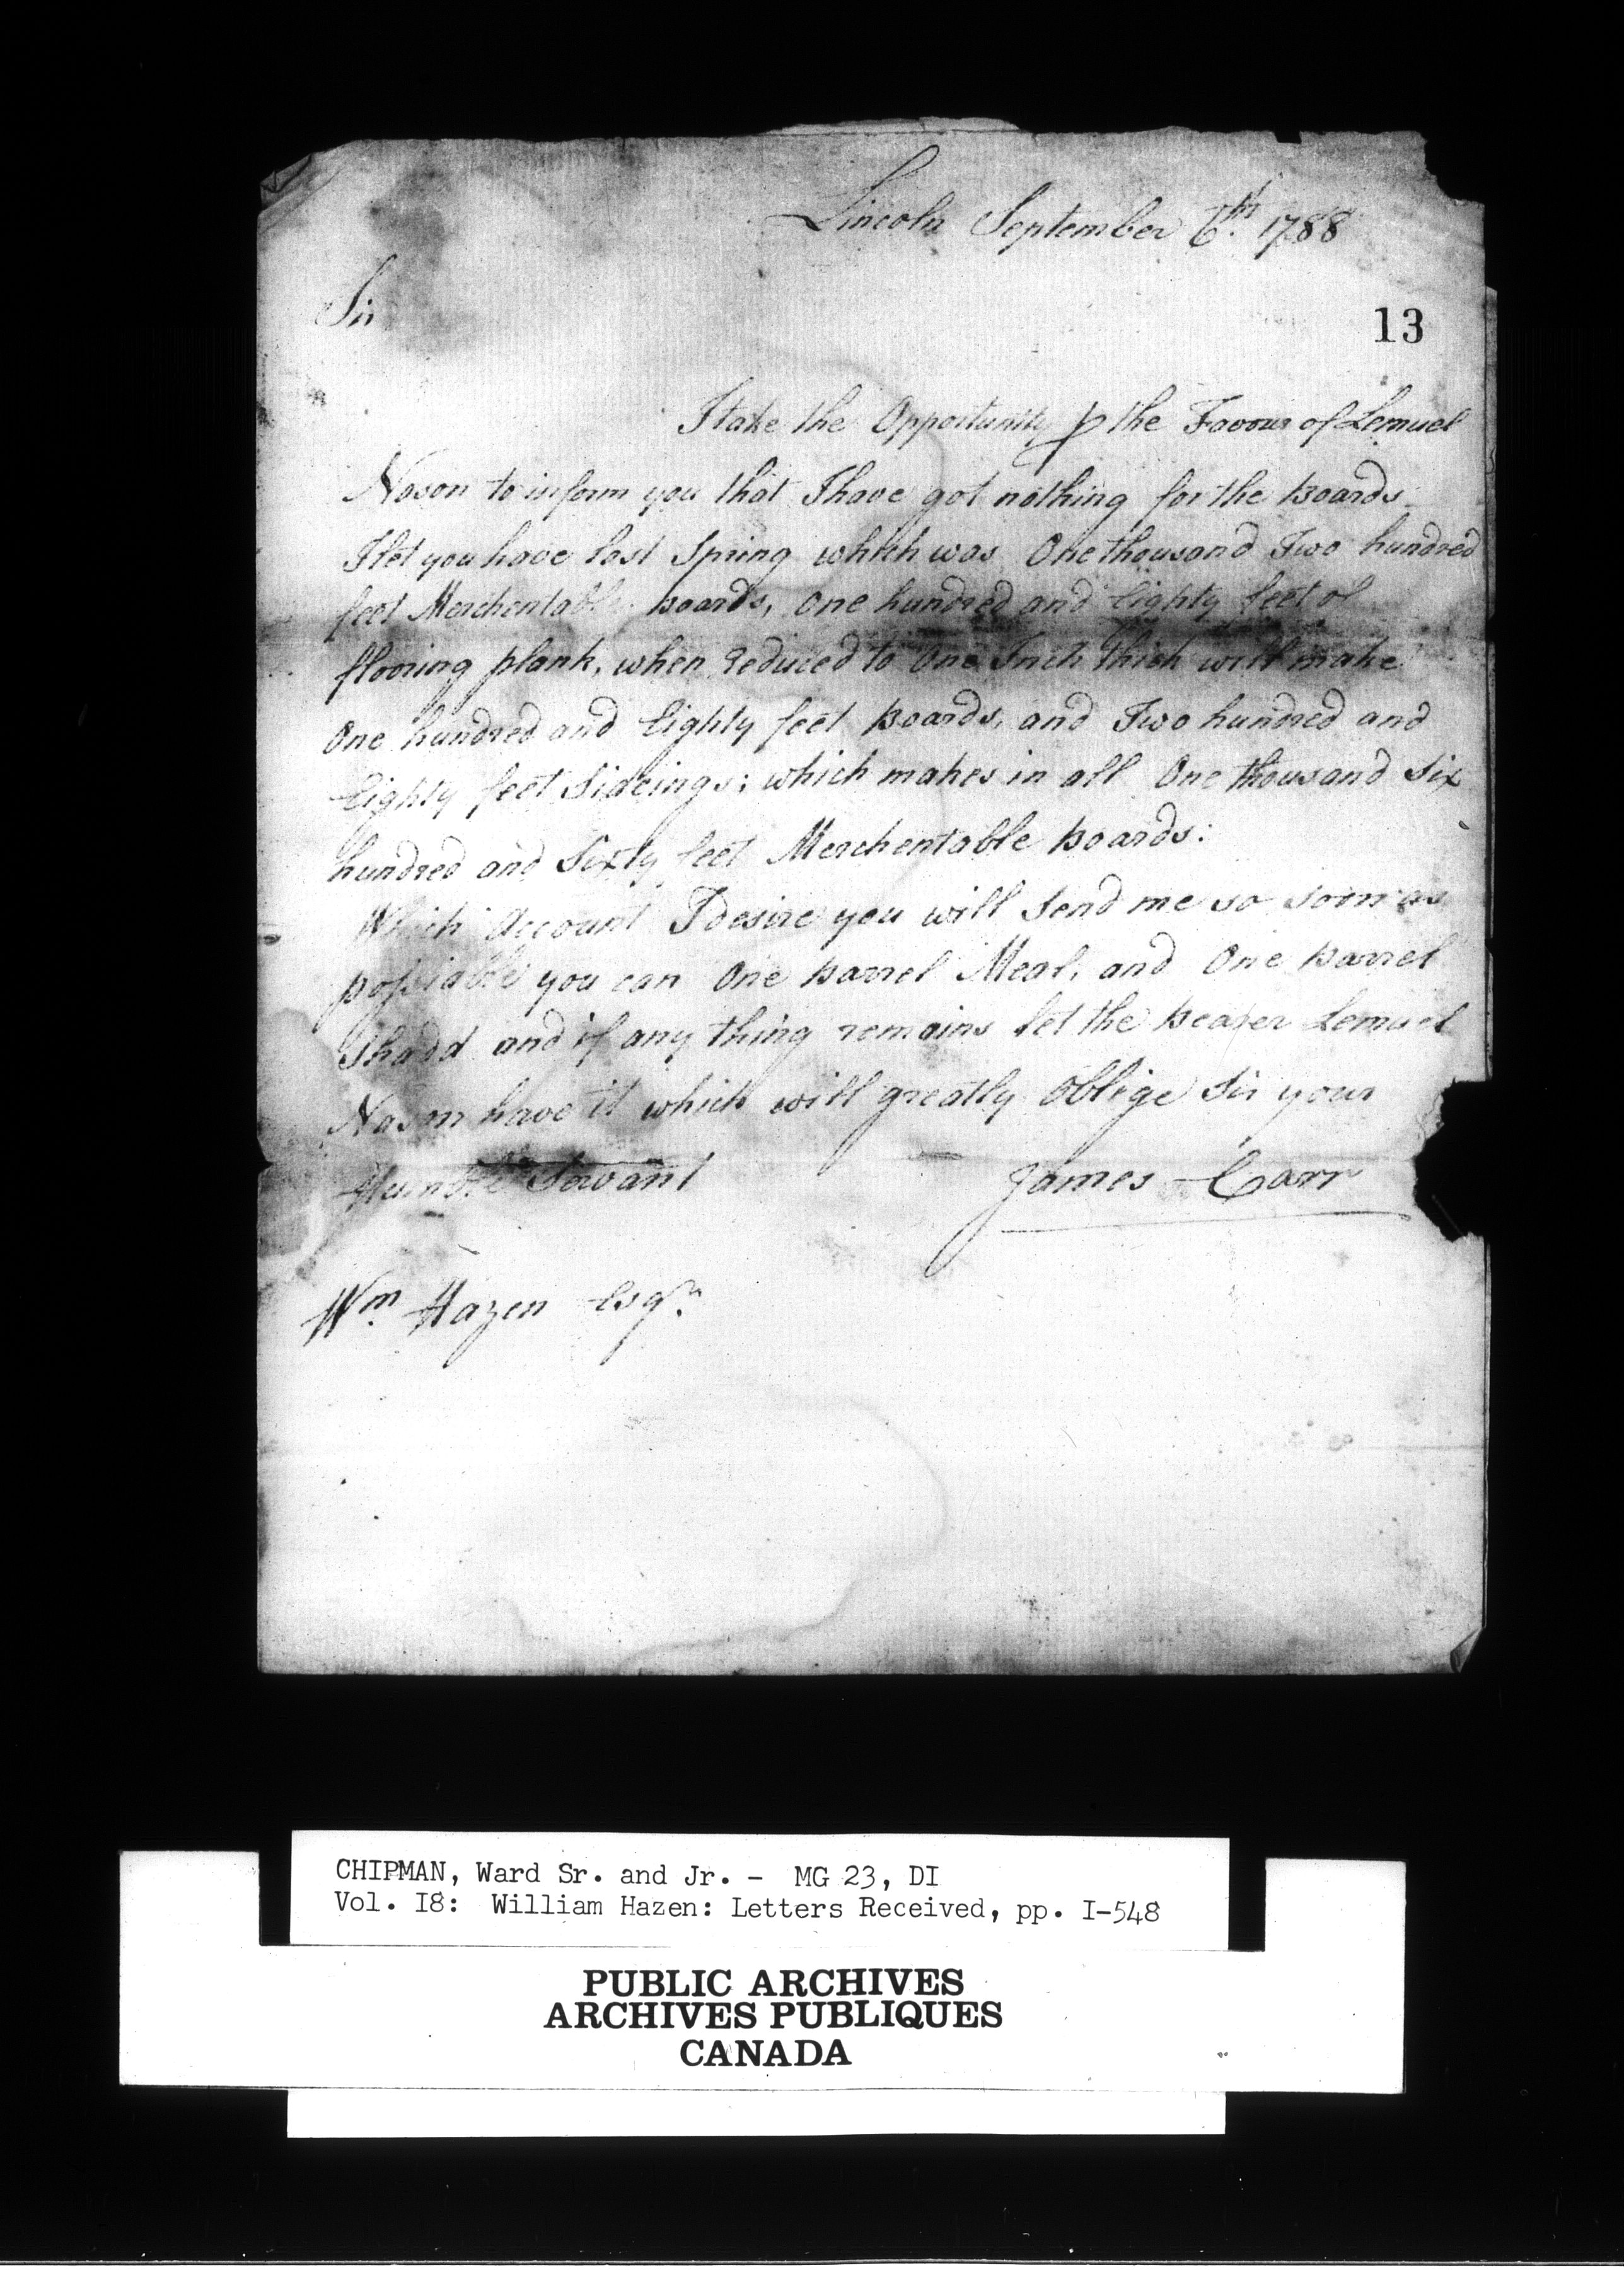 Lincoln September 6th. 1788
Sir
13
I take the Opportunity p the Favour of Lemuel
Nason to inform you that I have got nothing for the Boards
I let you have last Spring which was One thousand Two hundred
feet Merchentable boards, One hundred and Eighty feet of
flooring plank, when reduced to One Inch thick will make
One hundred and Eighty feet Boards, and Two hundred and
Eighty feet Sideings; which makes in all One thousand Six
hundred and Sixty feet Merchentable Boards:
Which Account I desire you will Send me so soon as
possiable you can One Barrel Meal, and One Barrel
Shadd and if any thing remains let the Bearer Lemuel
Nason have it which will greatly Oblige Sir your
Humble Servant James Carr
Wm. Hazen Esqr.
CHIPMAN, Ward Sr. and Jr. - MG 23, DI
Vol. I8: William Hazen: Letters Received, pp. I-548
PUBLIC ARCHIVES
ARCHIVES PUBLIQUES
CANADA